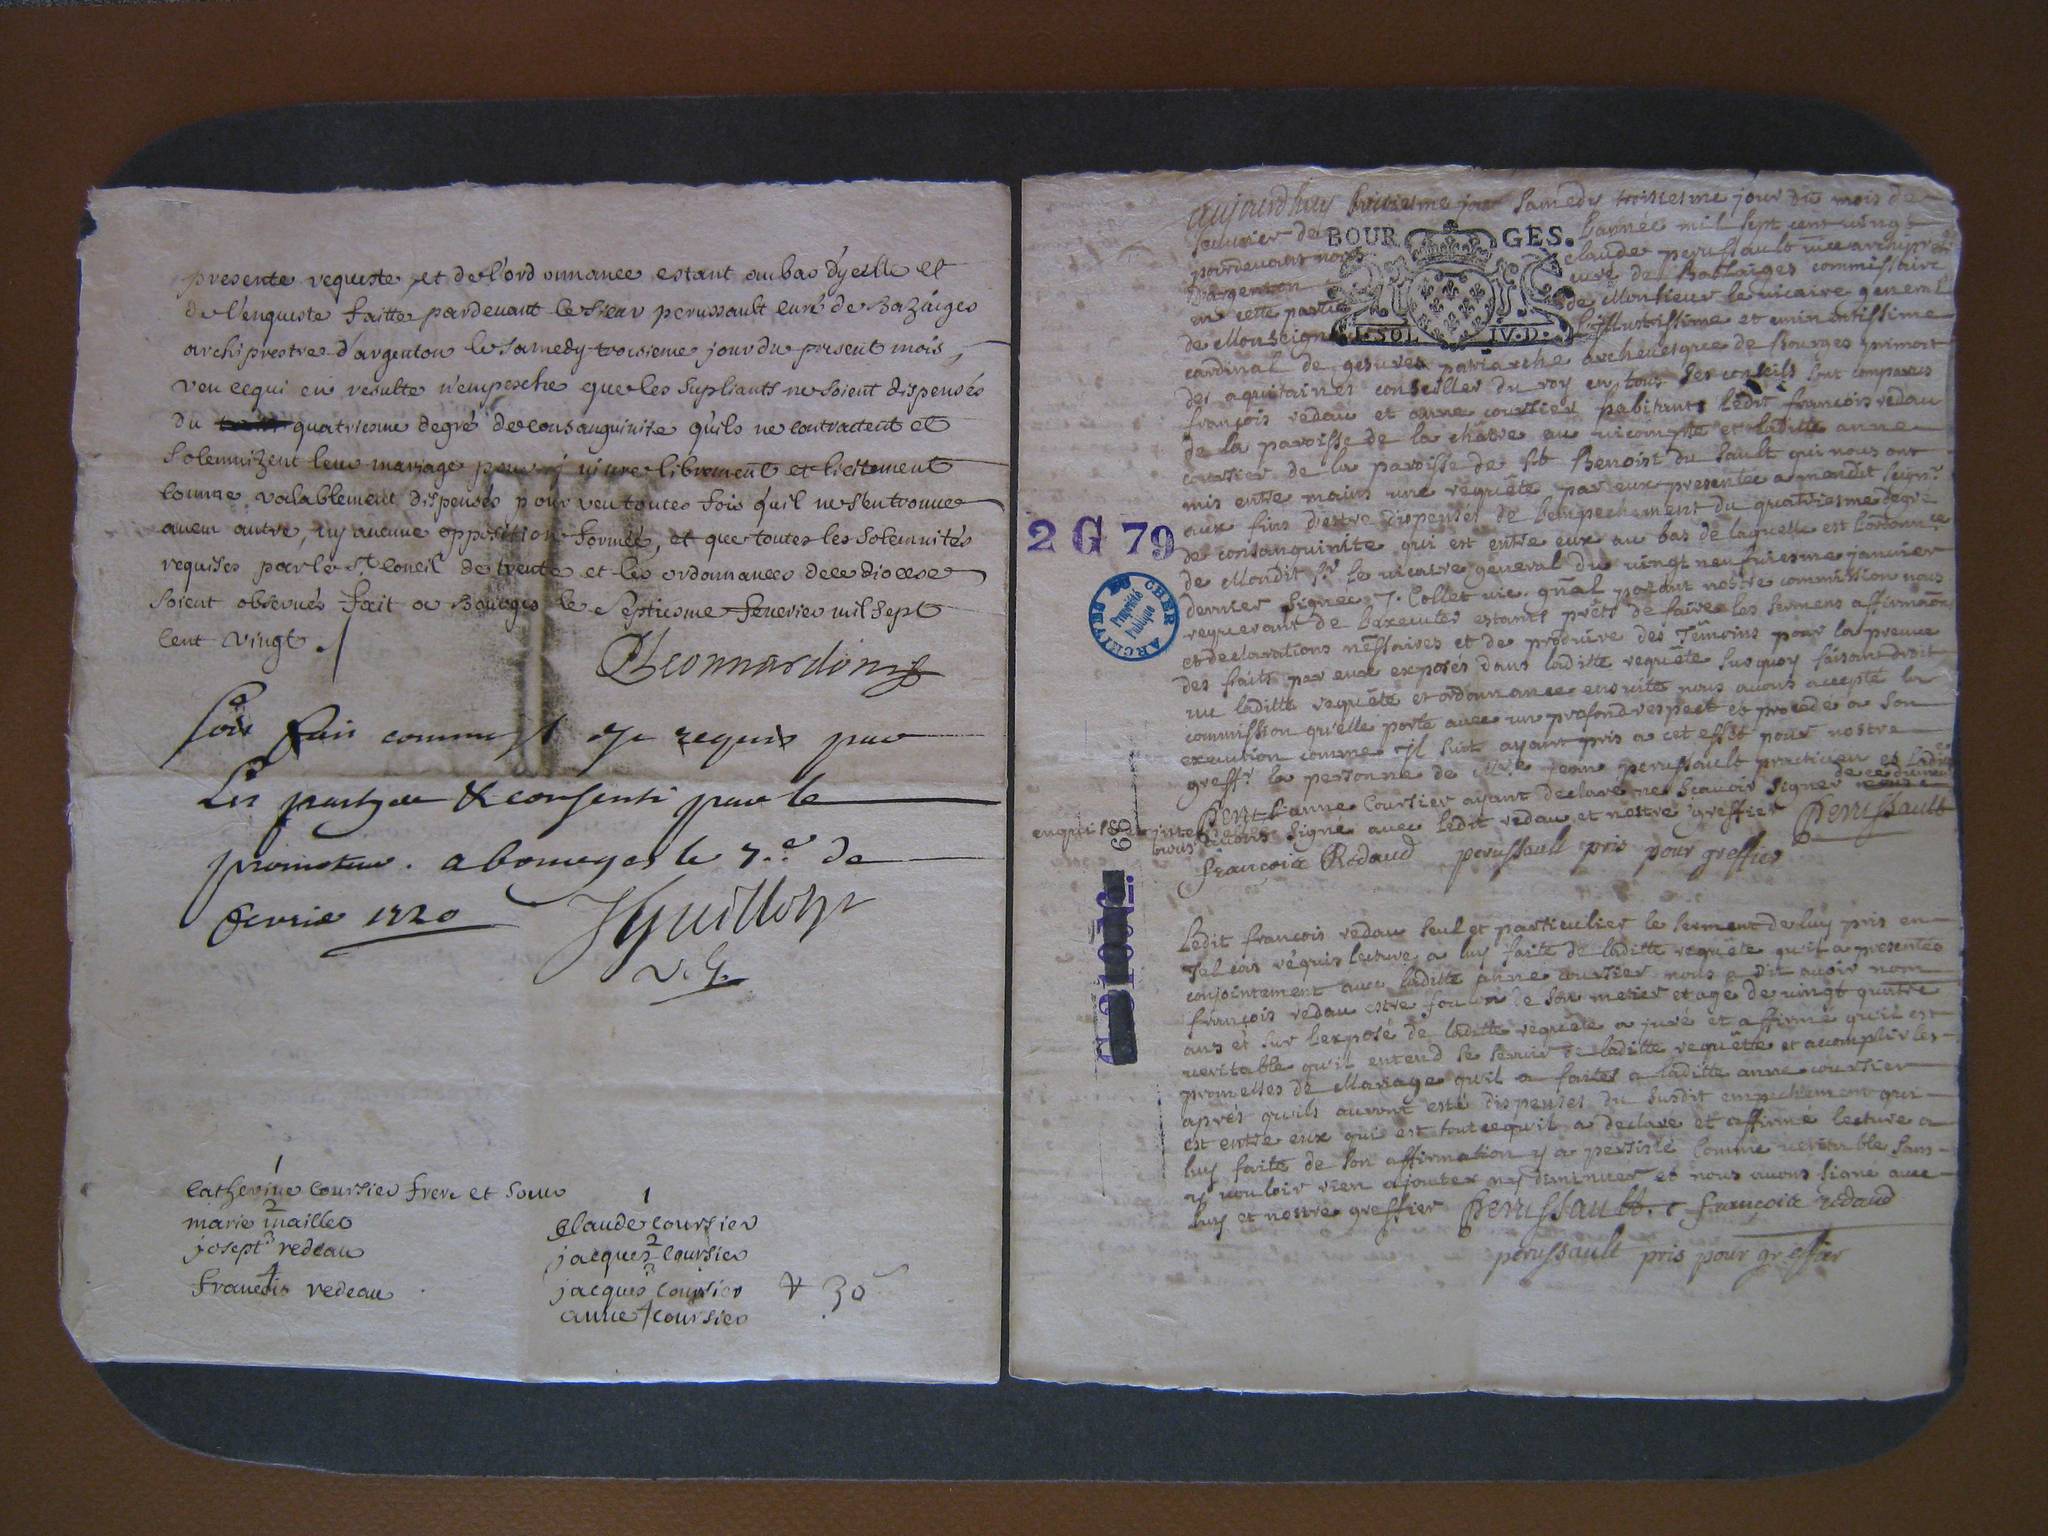 presente requeste et de l'ordonnance estant au bas d'ycelle et
de l'enqueste faitte pardevant le sieur perussault curé de Bazaiges
archiprestre d'argenton le samedy troisieme jour du present mois,
veu ce qui en resulte n'empesche que les supliants ne soient dispensés
du quatriesme degré de consanguinité qu'ils ne contractent et
solemnizent leur mariage pour y vivre librement et licitement
comme valablement dispensés pourveu toutes fois qu'il ne s'en trouve
aucun autre, ny aucune opposition formée, et que toutes les solemnités
requises par le St. Concil de trente et les ordonnances de ce diocese
soient observés fait a Bourges le septiesme fevrier mil sept
cent vingt.
soit fait comme il est requis par
les partyes & consenti par le
promoteur. a bourges le 7.e de
fevrie 1720
v. g.
1
catherine coursier frere et soeur
2
marie maillet
3
josept redeau
4
francois redeau
1
claude coursier
2
jacques coursier
3
jacques coursier
anne 4 coursier
30
aujourdhuy samedy troisiesme jour du mois de
feuvrier de l'année mil sept cent vingt
pardevant nous claude perussault vice archipr.
d'argenton curé de Bazaiges commissaire
en cette partie de Monsieur le vicaire general
de Monseigneur l'illustrissime et eminentissime
cardinal de gesvres patriarche archevesque de Bourges primat
des aquitaines conseiller du roy en tous ses conseils sont comparus
françois redau et anne coursier habitants ledit francois redau
de la paroisse de la châtre au vicompte et laditte anne
coursier de la paroisse de St Benoist du Sault qui nous ont
mis entre mains une requête par eux presentée a mondit seignr.
aux fins d'estre dispensés de l'empechement du quatriesme degré
de consanguinité qui est entre eux au bas de laquelle est l'ordonnce
de Mondit sr. le vicaire general du vingt neufviesme janvier
dernier signée J. Collet vic. gñal portant nostre commission nous
requerant de l'executer estants prêts de faire les sermens affirmaõns
et declarations necessaires et de produire des témoins pour la preuve
des faits par eux exposés dans laditte requête susquoy faisant droit
vu laditte requête et ordonnance ensuite nous avons accepté la
commission qu'elle porte avec un profond respect et procedé a son
execution comme il suit ayant pris a cet effet pour nostre
greffr. la personne de Mre jean perussault practicien et ladite
anne coursier ayant declaré ne scavoir signer de ce
signé avec ledit redau et nostre greffier Perussault
Françoie Redaud perussault pris pour greffier
Ledit françois redau seul et particulier le serment de luy pris en
tel cas requis lecture a luy faite de laditte requête qu'il a presentée
conjointement avec laditte anne coursier nous a dit avoir nom
françois redau estre foulon de son metier et agé de vingt quatre
ans et sur l'exposé de laditte requête a juré et affirmé qu'il est
veritable qu'il entend se servir de laditte requête et acomplir les
promesses de Mariage qu'il a faites a laditte anne coursier
aprés qu'ils auront esté dispensés du susdit empechement qui
est entre eux qui est tout ce qu'il a declaré et affirmé lecture a
luy faite de son affirmation y a persisté comme veritable sans
y vouloir rien ajouter ny diminuer et nous avons signé avec
luy et nostre greffier Perussault. françoie redaud
perussault pris pour greffier
BOUR GES.
1. SOL IV. D.
2 G 79
ARCHIVES DU CHER
Propriété
Publique
68